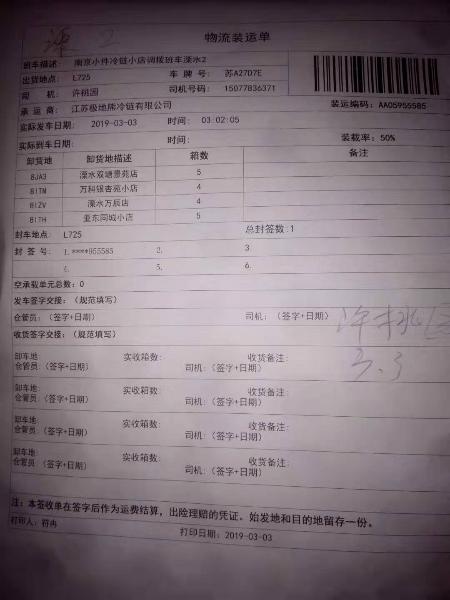 溧 2
物流装运单
班车描述: 南京小件冷链小店调陵班车溧水2
出货地点: L725 车 牌 号: 苏A27D7E
司 机: 许桃园 司机号码: 15077836371
承 运 商: 江苏极地熊冷链有限公司 装运编码: AA05955585
实际发车日期: 2019-03-03 时间: 03:02:05
实际到车日期: 时间: 装载率: 50%
卸货地 卸货地描述 箱数 备注
8JA3 溧水双塘景苑店 5
8ITM 万科银杏苑小店 4
8IZV 溧水万辰店 4
8ITH 亚东同城小店 5
封车地点: L725 总封签数:1
封 签 号: 1.****955585 2. 3
4. 5. 6.
空承载单元总数: 0
发车签字交接: (规范填写)
仓管员: (签字+日期) 司机: (签字+日期) 许桃园
3.3
收货签字交接: (规范填写)
卸车地 实收箱数: 收货备注:
仓管员: (签字+日期) 司机: (签字+日期)
卸车地 实收箱数: 收货备注:
仓管员: (签字+日期) 司机: (签字+日期)
卸车地 实收箱数: 收货备注:
仓管员: (签字+日期) 司机: (签字+日期)
卸车地 实收箱数: 收货备注:
仓管员: (签字+日期) 司机: (签字+日期)
注: 本签收单在签字后作为运费结算, 出险理赔的凭证。始发地和目的地留存一份。
打印人: 符冉 打印日期: 2019-03-03